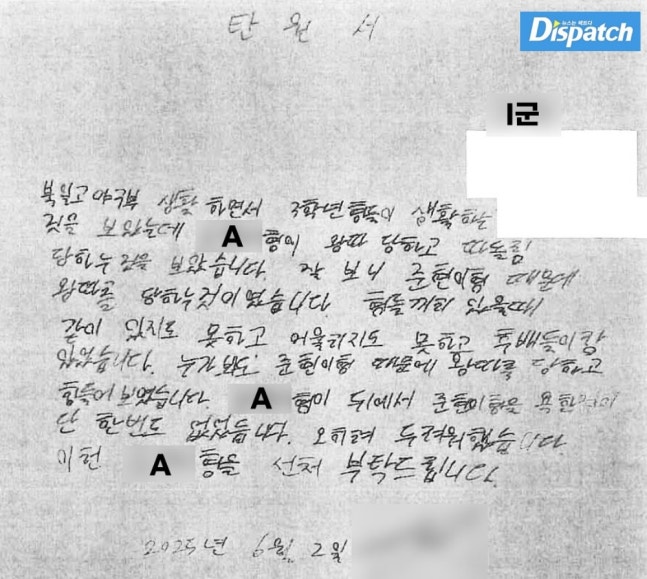 탄원서
뉴스는 팩트다
Dispatch
I군
북일고 야구부 생활 하면서 3학년 형들이 생활하는
것을 보았는데 A 형이 왕따 당하고 따돌림
당하는 것을 보았습니다. 잘 보니 준현이형 때문에
왕따를 당하는것이였습니다 형들끼리 있을때
같이 있지도 못하고 어울리지도 못하고 후배들이랑
있었습니다. 누가봐도 준현이형 때문에 왕따를 당하고
힘들어 보였습니다. A 형이 뒤에서 준현이형을 욕한적이
단 한번도 없었습니다. 오히려 두려워했습니다
이런 A 형을 선처 부탁드립니다.
2025년 6월 2일